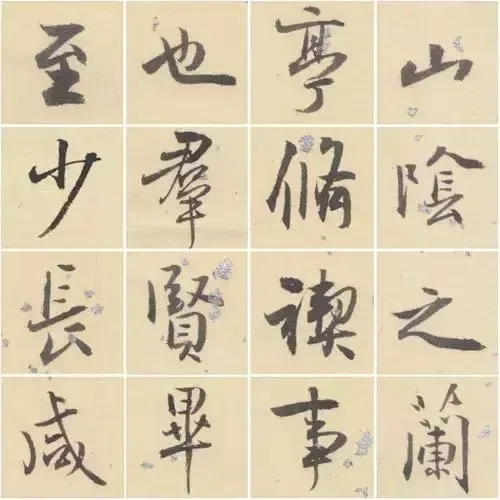 山陰之蘭
亭脩禊事
也羣賢畢
至少長咸